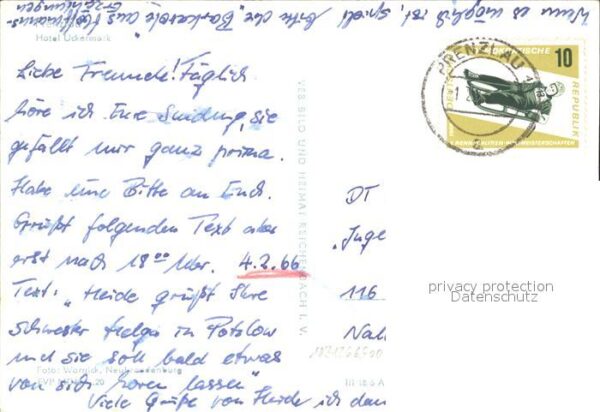 Wenn es möglich ist, spielt bitte die "Barkarole aus Hoffmanns-
Erzählungen
Hotel Uckermark
Liebe Freunde! Täglich
höre ich Eure Sendung, sie
gefällt mir ganz prima.
Habe eine Bitte an Euch.
Grüßt folgenden Text aber
erst nach 18 00 Uhr. 4.2.66
Text: "Heide grüßt Ihre
Schwester Helga in Potzlow
und sie soll bald etwas
von sich hören lassen"
Viele Grüße von Heide ich dan
Foto: Wornick, Neubrandenburg
III 18 6 A
VEB BILD UND HEIMAT REICHENBACH I. V.
DT
"Juge
116
Nal
PRENZLAU
DEMOKRATISCHE
REPUBLIK
10
RENNSCHLITTEN-WELTMEISTERSCHAFTEN
privacy protection
Datenschutz